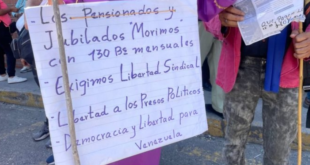 - Los Pensionados y
Jubilados Morimos
con 130 Bs mensuales
- Exigimos Libertad Sindical
- Libertad a los Presos Políticos
- Democracia y Libertad para
Venezuela